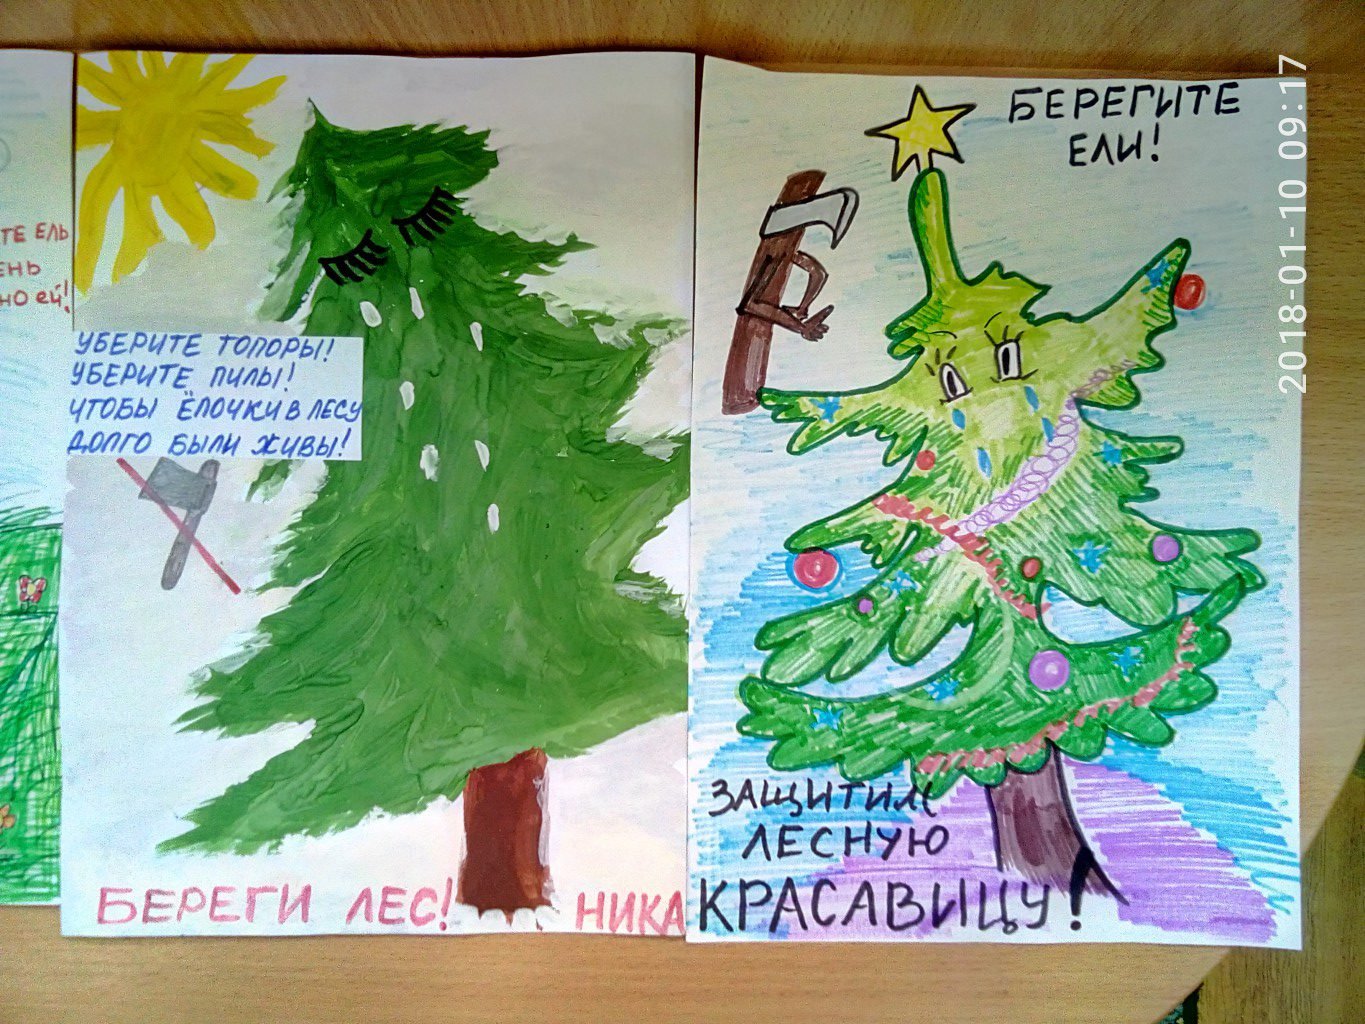 ТЕ ЕЛЬ
ЕНЬ
НО ЕЙ!
УБЕРИТЕ ТОПОРЫ!
УБЕРИТЕ ПИЛЫ!
ЧТОБЫ ЁЛОЧКИ В ЛЕСУ
ДОЛГО БЫЛИ ЖИВЫ!
БЕРЕГИ ЛЕС!
НИКА
БЕРЕГИТЕ
ЕЛИ!
ЗАЩИТИМ
ЛЕСНУЮ
КРАСАВИЦУ!
2018-01-10 09:17